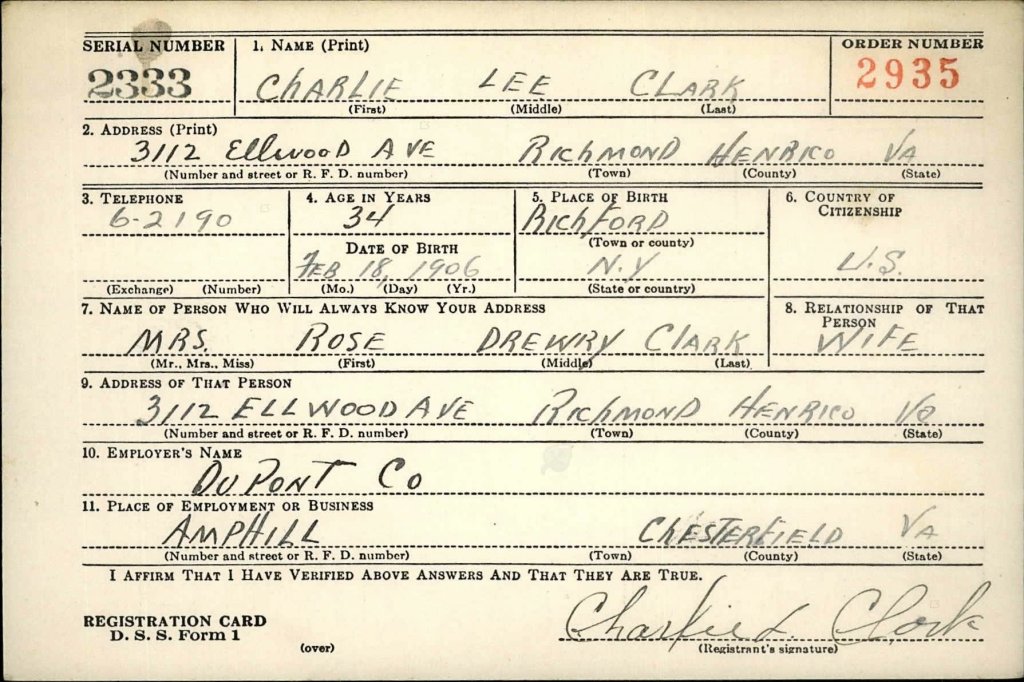 SERIAL NUMBER 1. NAME (Print) ORDER NUMBER
2333 CHARLIE LEE CLARK 2935
(First) (Middle) (Last)
2. ADDRESS (Print)
3112 EllwooD AVE RICHMOND HENRICO VA
(Number and street or R. F. D. number) (Town) (County) (State)
3. TELEPHONE 4. AGE IN YEARS 5. PLACE OF BIRTH 6. COUNTRY OF CITIZENSHIP
6-2190 34 RICHFORD
(Town or county)
DATE OF BIRTH
FEB 18, 1906 N.Y U.S.
(Exchange) (Number) (Mo.) (Day) (Yr.) (State or country)
7. NAME OF PERSON WHO WILL ALWAYS KNOW YOUR ADDRESS 8. RELATIONSHIP OF THAT PERSON
MRS. ROSE DREWRY CLARK WIFE
(Mr., Mrs., Miss) (First) (Middle) (Last)
9. ADDRESS OF THAT PERSON
3112 ELLWOOD AVE RICHMOND HENRICO Va
(Number and street or R. F. D. number) (Town) (County) (State)
10. EMPLOYER'S NAME
DUPONT CO
11. PLACE OF EMPLOYMENT OR BUSINESS
AMPHILL CHESTERFIELD VA
(Number and street or R. F. D. number) (Town) (County) (State)
I AFFIRM THAT I HAVE VERIFIED ABOVE ANSWERS AND THAT THEY ARE TRUE.
REGISTRATION CARD Charlie L. Clark
D. S. S. Form 1 (over) (Registrant's signature)